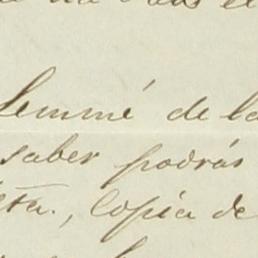 Lemmé de la
saber podrás
eta., Copia de